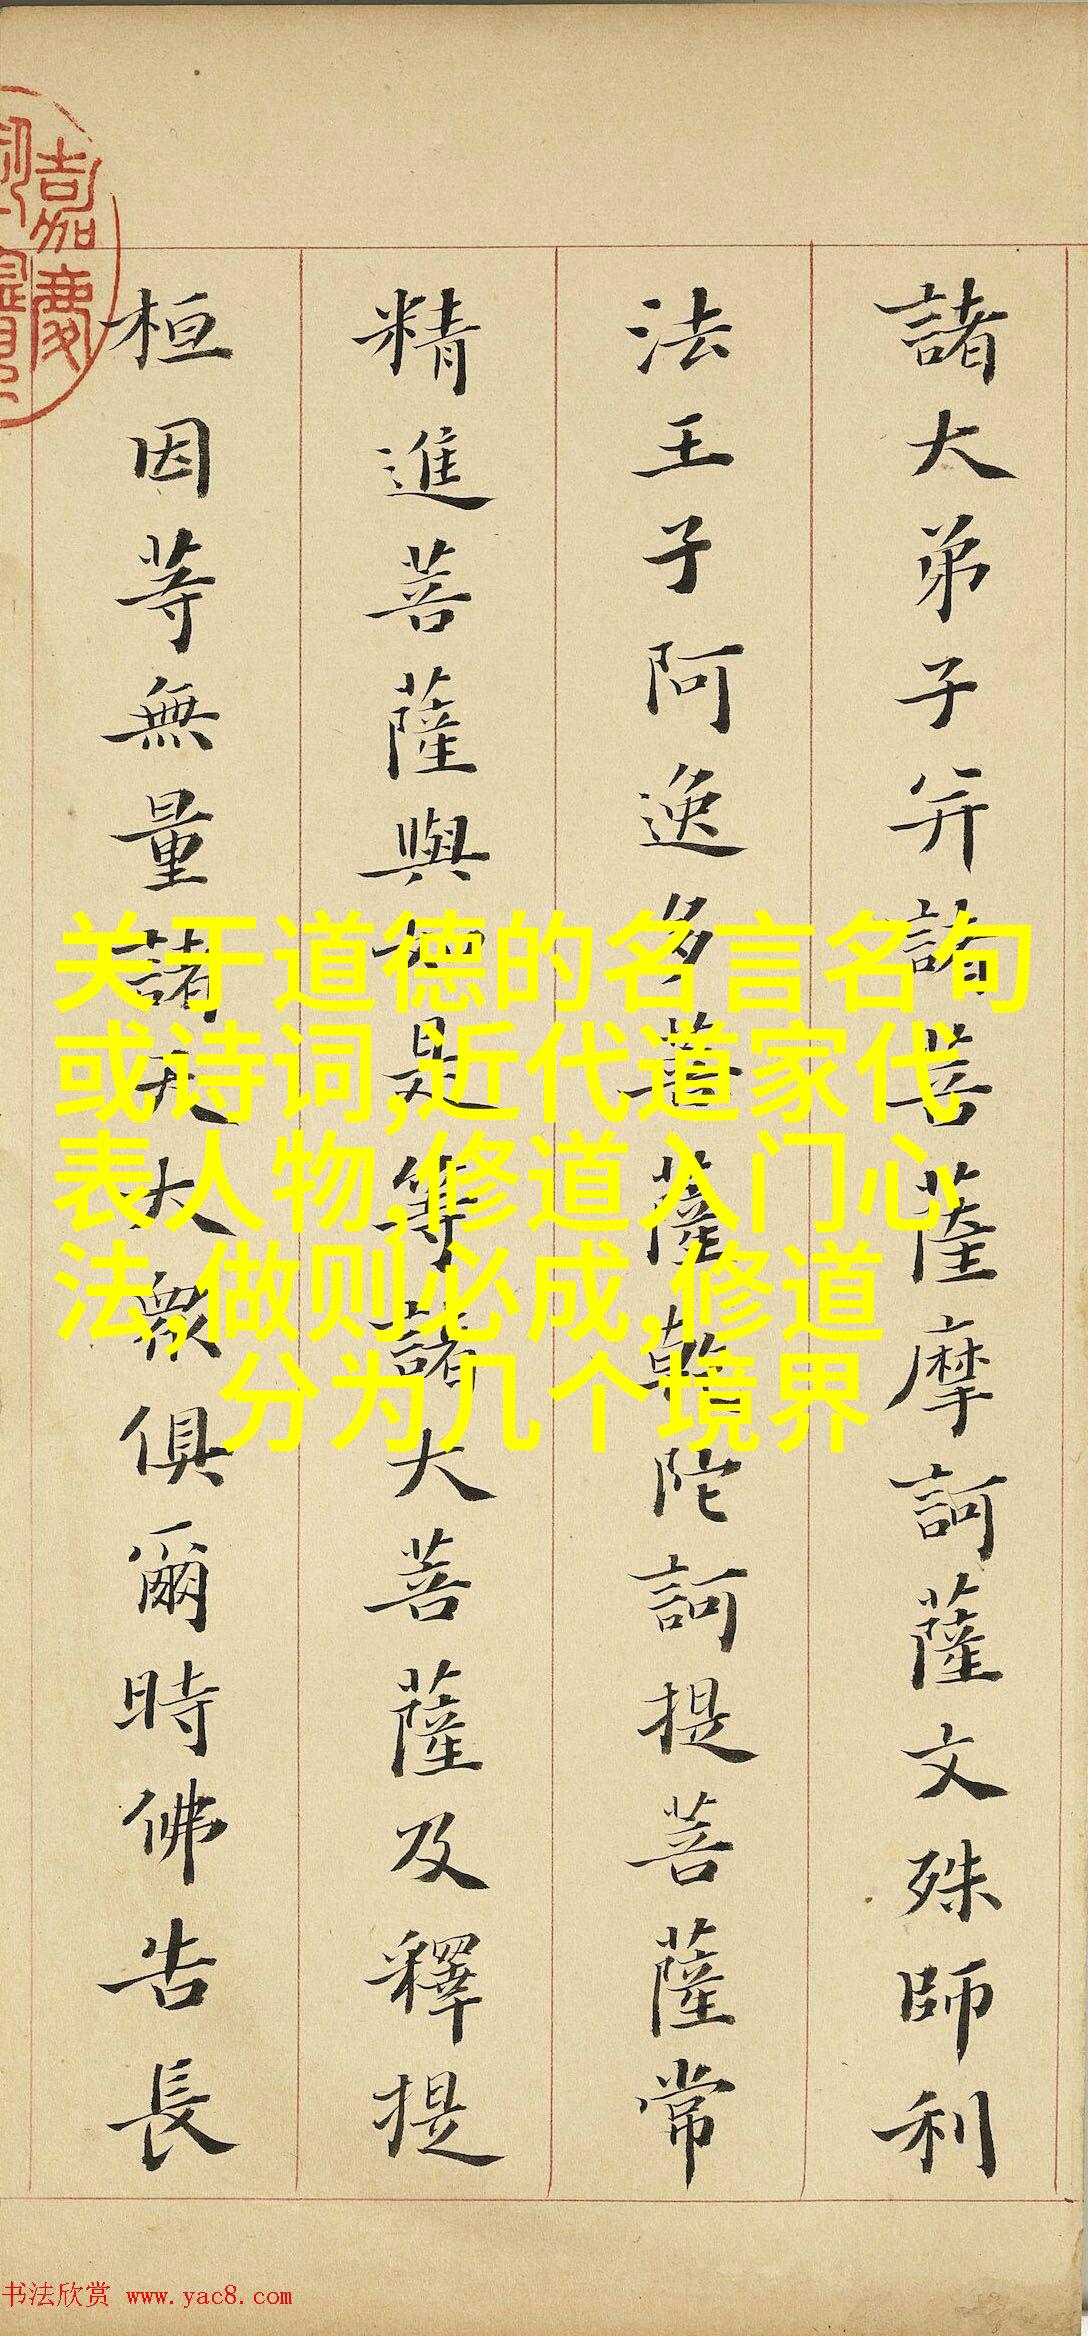 諸大弟子并諸菩薩摩訶薩文殊師利
法王子阿逸多菩薩乾陀訶提菩薩常
精進菩薩與如是等諸大菩薩及釋提
桓因等無量諸天大眾俱爾時佛告長
嘉慶
关于道德的名言名句
或诗词,近代道家代
表人物,修道入门心
法,做则必成,修道
分为几个境界
书法欣赏 www.yac8.com